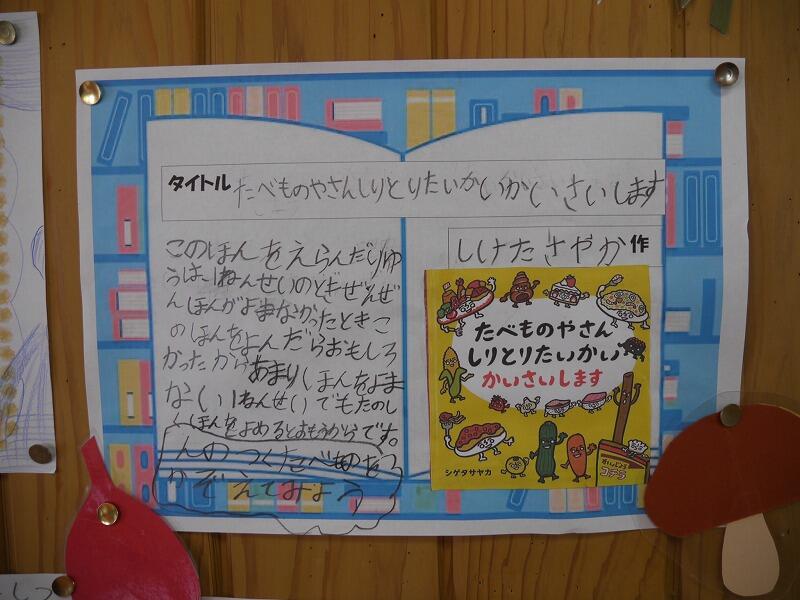 タイトル たべものやさんしりとりたいかいかいさいします
しけたさやか 作
このほんをえらんだりゆ
うは、1ねんせいのときぜんぜ
んほんがよまなかったときこ
のほんをよんだらおもしろ
かったからあまりほんをよま
ない1ねんせいでもたのし
くほんをよめるとおもうからです。
んのつくたべものを
かぞえてみよう
たべものやさん
しりとりたいかい
かいさいします
シゲタサヤカ